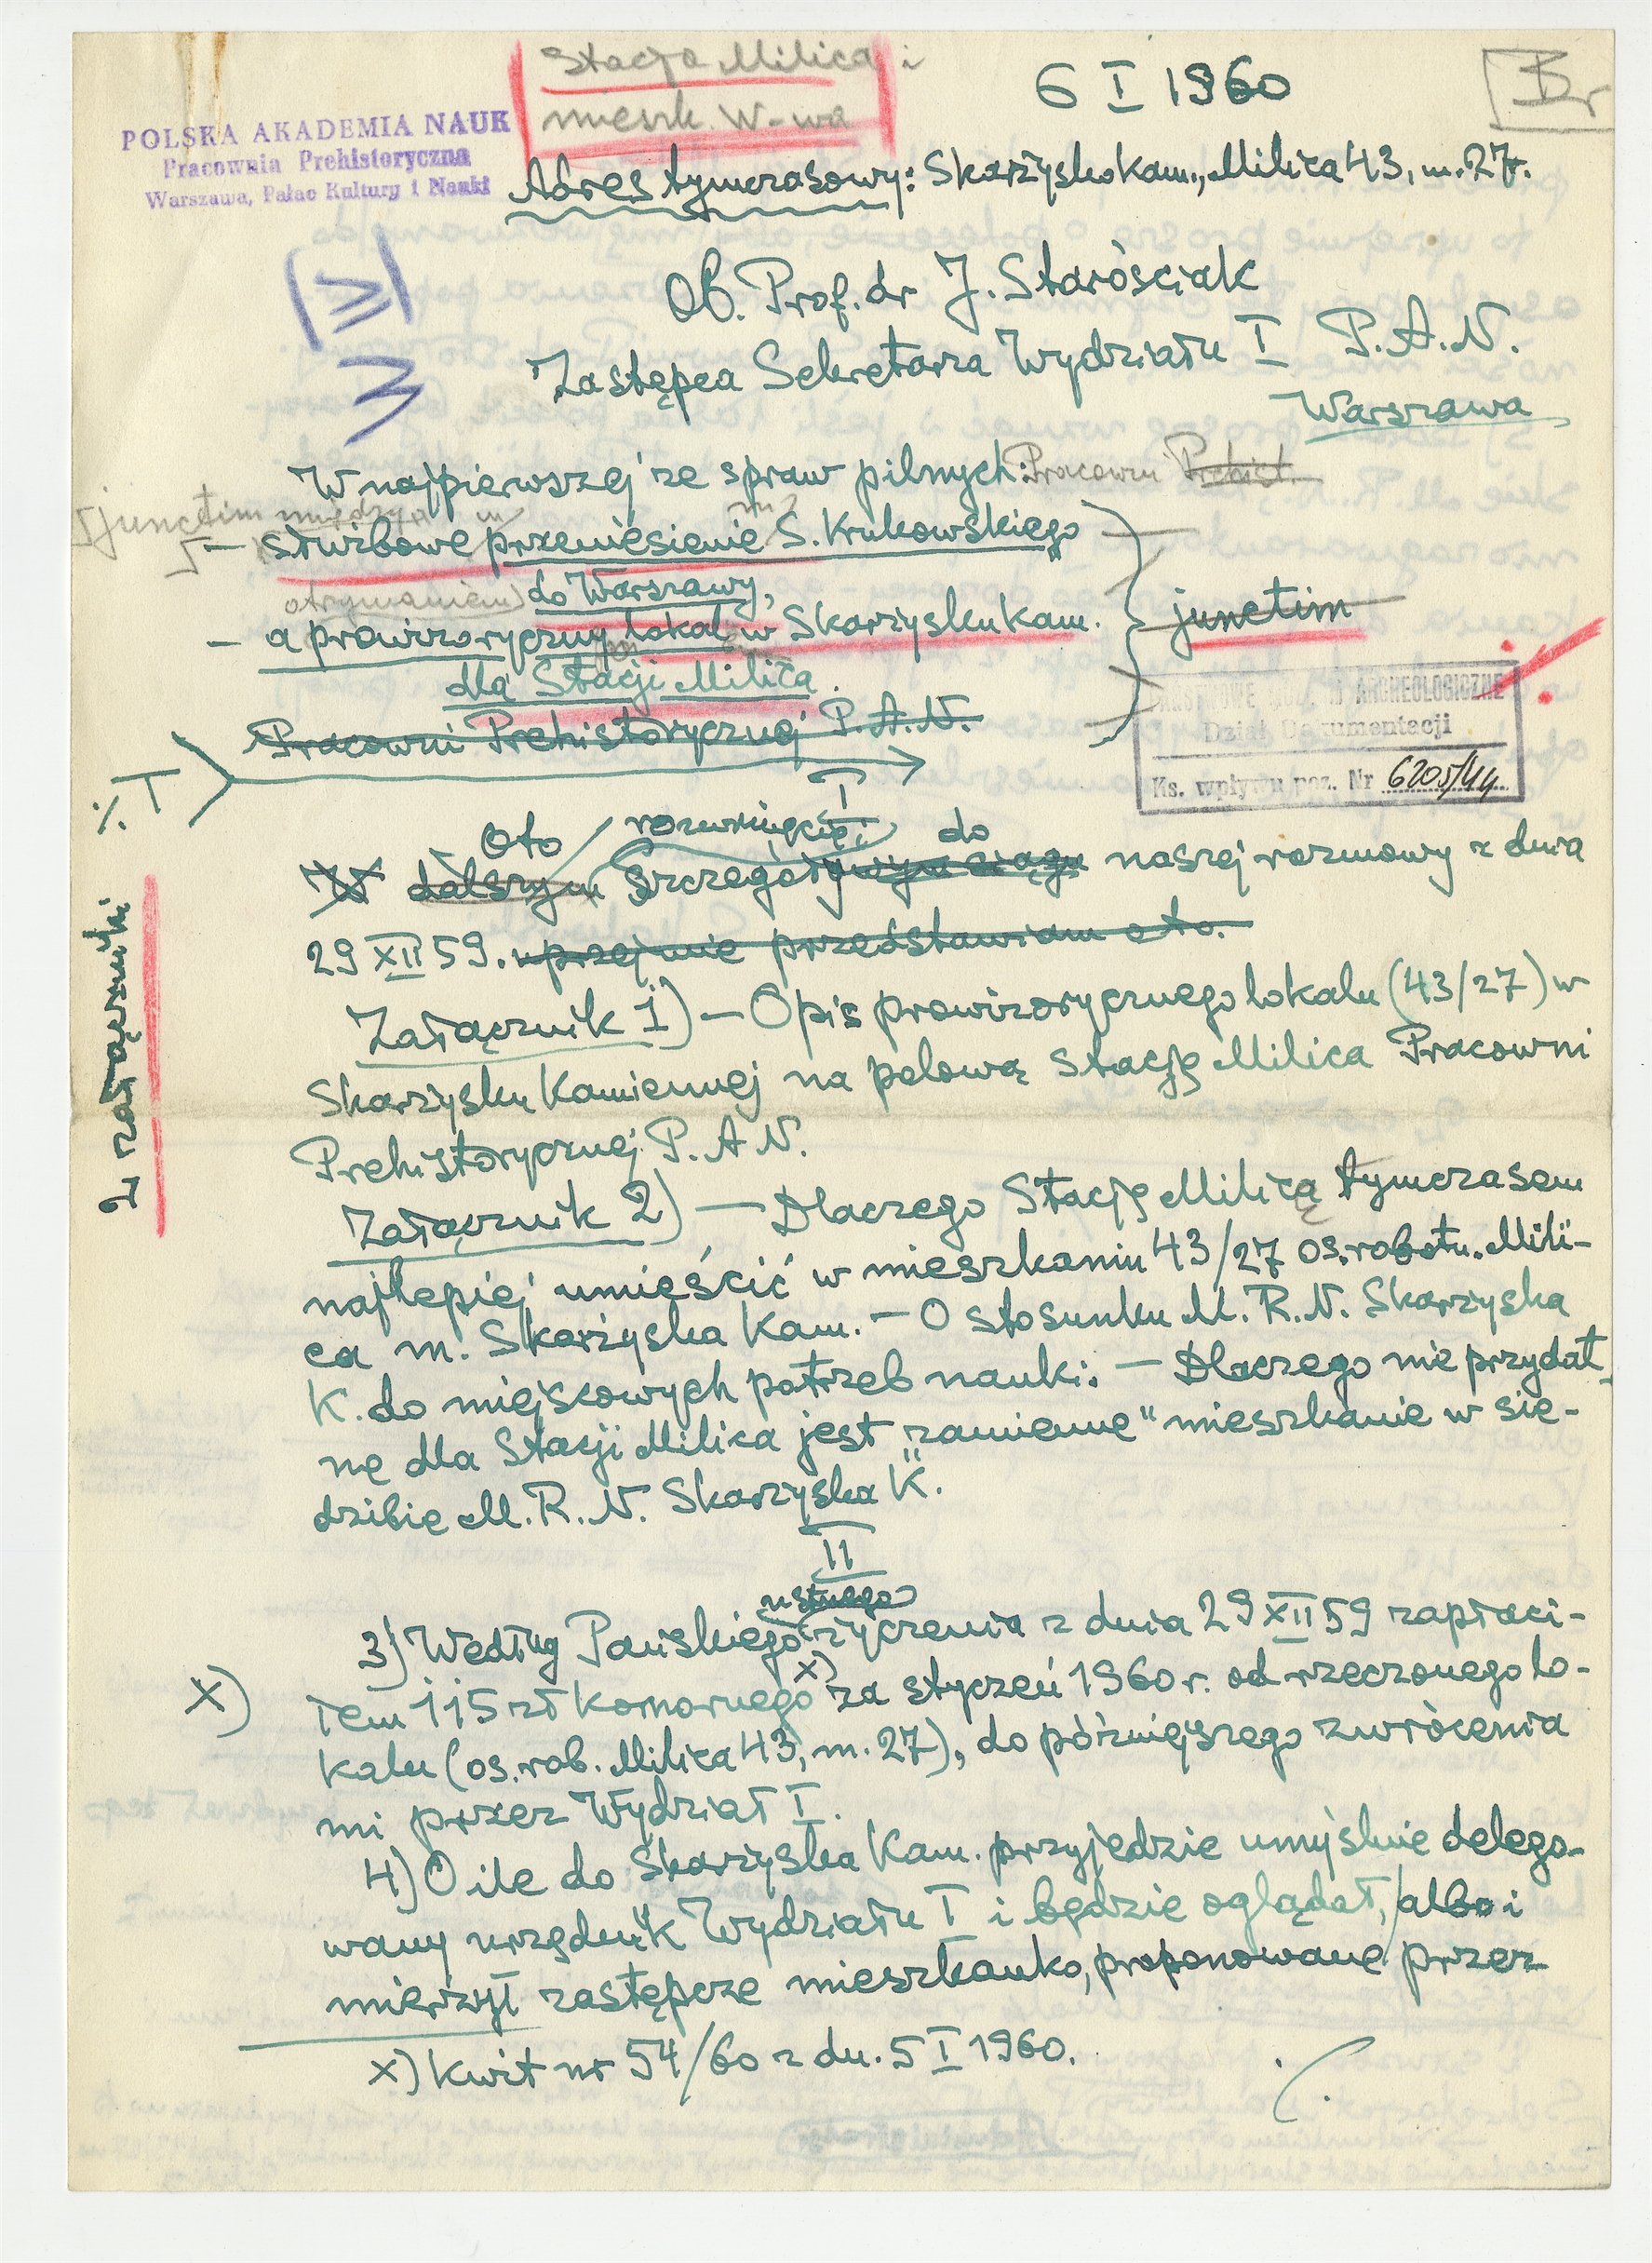 Stacja Milica i
mieszk. W-wa
6 I 1960
Br
POLSKA AKADEMIA NAUK
Pracownia Prehistoryczna
Warszawa, Pałac Kultury i Nauki
Adres tymczasowy: Skarżysko Kam., Milica 43, m. 27.
Ob. Prof. dr J. Starościak
Zastępca Sekretarza Wydziału I P.A.N.
Warszawa
W najpierwszej ze spraw pilnych: Pracowni Prehist.
junctim między
— służbowe przeniesienie S. Krukowskiego
otrzymaniem do Warszawy,
— a prowizoryczny lokal w Skarżysku Kam.
junctim
dla Stacji Milica.
Pracowni Prehistorycznej P.A.N.
PAŃSTWOWE MUZEUM ARCHEOLOGICZNE
Dział Dokumentacji
Ks. wpływu poz. Nr 6205/44
I
Oto rozwinięcie i do
W dalszym szczegółowym ciągu naszej rozmowy z dnia
29 XII 59. uprzejmie przedstawiam oto.
2 załączniki
Załącznik 1) — Opis prowizorycznego lokalu (43/27) w
Skarżysku Kamiennej na polową stację Milica Pracowni
Prehistorycznej P.A.N.
Załącznik 2) — Dlaczego Stację Milicą tymczasem
najlepiej umieścić w mieszkaniu 43/27 os. robotn. Mili-
ca m. Skarżyska Kam. — O stosunku M.R.N. Skarżyska
K. do miejscowych potrzeb nauki. — Dlaczego nie przydat-
ne dla Stacji Milica jest „zamienne" mieszkanie w sie-
dzibie M.R.N. Skarżyska K.
II
ustnego
3) Według Pańskiego życzenia z dnia 29 XII 59 zapłaci-
x) łem 115 zł komornego x) za styczeń 1960 r. od rzeczonego lo-
kalu (os. rob. Milica 43, m. 27), do późniejszego zwrócenia
mi przez Wydział I.
4) O ile do Skarżyska Kam. przyjedzie umyślnie delego-
wany urzędnik Wydziału I i będzie oglądał, albo i
mierzył zastępcze mieszkanko, proponowane przez
x) Kwit nr 54/60 z dn. 5 I 1960.
./.